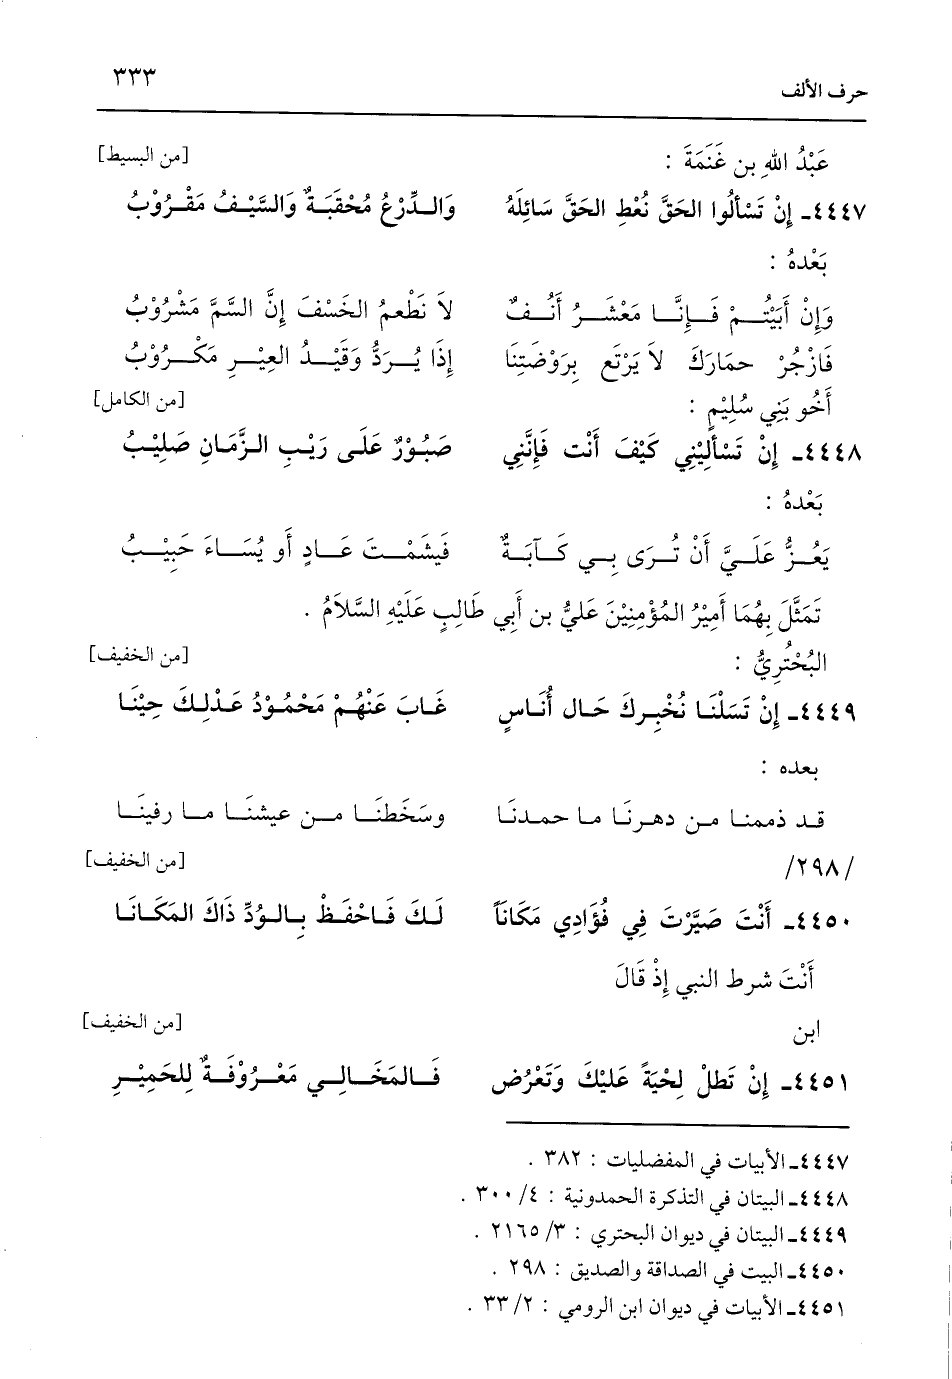 حرف الألف ٣٣٣
عَبْدُ اللهِ بن عَنَمَةَ : [من البسيط]
٤٤٤٧ـ إِنْ تَسْأَلُوا الحَقَّ نُعْطِ الحَقَّ سَائِلَهُ وَالدِّرْعُ مُحْقَبَةٌ وَالسَّيْفُ مَقْرُوْبُ
بَعْدهُ :
وَإِنْ أَبَيْتُمْ فَإِنَّا مَعْشَرُ أَنُفٌ لاَ نَطْعمُ الخَسْفَ إِنَّ السَّمَّ مَشْرُوْبُ
فَازْجُرْ حمَارَكَ لاَ يَرْتَع بِرَوْضَتِنَا إِذَا يُرَدُّ وَقَيْدُ العِيْرِ مَكْرُوْبُ
أَخُو بَنِي سُلِيْمٍ : [من الكامل]
٤٤٤٨ـ إِنْ تَسْأَلِيْنِي كَيْفَ أَنْت فَإِنَّنِي صَبُوْرٌ عَلَى رَيْبِ الزَّمَانِ صَلِيْبُ
بَعْدهُ :
يَعُزُّ عَلَيَّ أَنْ تُرَى بِي كَآبَةٌ فَيشَمْتَ عَادٍ أَو يُسَاءَ حَبِيْبُ
تَمَثَّلَ بِهُمَا أَمِيْرُ المُؤْمِنِيْنَ عَلِيُّ بن أَبِي طَالِبٍ عَلَيْهِ السَّلاَمُ .
البُحْتُرِيُّ : [من الخفيف]
٤٤٤٩ـ إِنْ تَسَلْنَا نُخْبِركَ حَال أُنَاسٍ غَابَ عَنْهُمْ مَحْمُوْدُ عَذْلِكَ حِيْنَا
بعده :
قد ذممنا من دهرنَا ما حمدنَا وسَخَطنَا من عيشنَا ما رفينَا
/٢٩٨/ [من الخفيف]
٤٤٥٠ـ أَنْتَ صَيَّرْتَ فِي فُؤَادِي مَكَاناً لَكَ فَاحْفَظْ بِالوُدِّ ذَاكَ المَكَانَا
أَنْتَ شرط النبي إِذْ قَالَ
ابن [من الخفيف]
٤٤٥١ـ إِنْ تَطلْ لِحْيَةً عَلَيْكَ وَتَعْرُض فَالمَخَالِي مَعْرُوْفَةٌ لِلحَمِيْرِ
٤٤٤٧ـ الأبيات في المفضليات : ٣٨٢ .
٤٤٤٨ـ البيتان في التذكرة الحمدونية : ٤/ ٣٠٠ .
٤٤٤٩ـ البيتان في ديوان البحتري : ٣/ ٢١٦٥ .
٤٤٥٠ـ البيت في الصداقة والصديق : ٢٩٨ .
٤٤٥١ـ الأبيات في ديوان ابن الرومي : ٢/ ٣٣ .